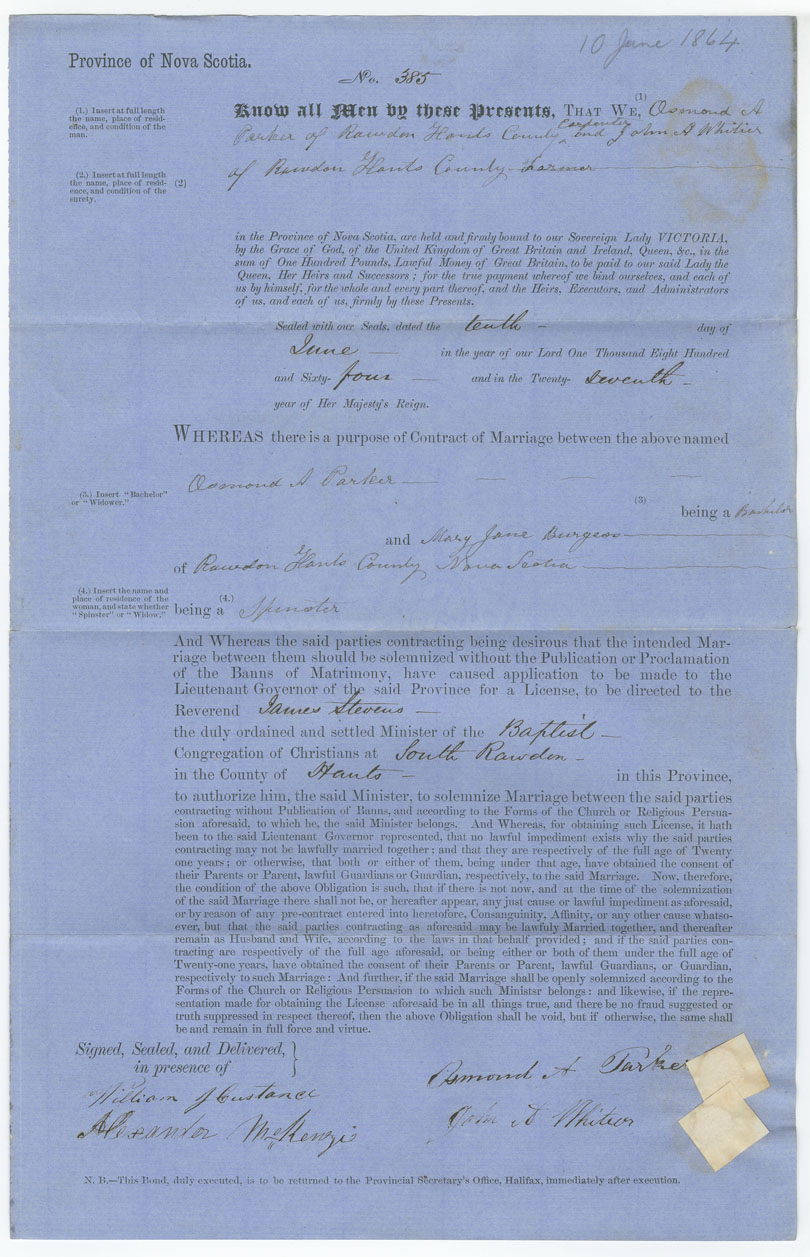 10 June 1864
Province of Nova Scotia.
No. 385
(1.) Insert at full length
the name, place of resid-
ence, and condition of the
man.
(1)
Know all Men by these Presents, THAT WE, Osmond A
Parker of Rawdon Hants County Carpenter and John A Whitier
(2.) Insert at full length
the name, place of resid-
ence, and condition of the
surety.
(2)
of Rawdon Hants County Farmer
in the Province of Nova Scotia, are held and firmly bound to our Sovereign Lady VICTORIA,
by the Grace of God, of the United Kingdom of Great Britain and Ireland, Queen, &c., in the
sum of One Hundred Pounds, Lawful Money of Great Britain, to be paid to our said Lady the
Queen, Her Heirs and Successors; for the true payment whereof we bind ourselves, and each of
us by himself, for the whole and every part thereof, and the Heirs, Executors, and Administrators
of us, and each of us, firmly by these Presents.
Sealed with our Seals, dated the tenth - day of
June — in the year of our Lord One Thousand Eight Hundred
and Sixty- four — and in the Twenty- seventh -
year of Her Majesty's Reign.
WHEREAS there is a purpose of Contract of Marriage between the above named
Osmond A Parker —
(3.) Insert "Bachelor"
or "Widower."
(3)
being a Bachelor
and Mary Jane Burgess
of Rawdon Hants County Nova Scotia
(4.) Insert the name and
place of residence of the
woman, and state whether
"Spinster" or "Widow."
(4.)
being a Spinster
And Whereas the said parties contracting being desirous that the intended Mar-
riage between them should be solemnized without the Publication or Proclamation
of the Banns of Matrimony, have caused application to be made to the
Lieutenant Governor of the said Province for a License, to be directed to the
Reverend James Stevens —
the duly ordained and settled Minister of the Baptist —
Congregation of Christians at South Rawdon -
in the County of Hants - in this Province,
to authorize him, the said Minister, to solemnize Marriage between the said parties
contracting without Publication of Banns, and according to the Forms of the Church or Religious Persua-
sion aforesaid, to which he, the said Minister belongs. And Whereas, for obtaining such License, it hath
been to the said Lieutenant Governor represented, that no lawful impediment exists why the said parties
contracting may not be lawfully married together: and that they are respectively of the full age of Twenty
one years; or otherwise, that both or either of them, being under that age, have obtained the consent of
their Parents or Parent, lawful Guardians or Guardian, respectively, to the said Marriage. Now, therefore,
the condition of the above Obligation is such, that if there is not now, and at the time of the solemnization
of the said Marriage there shall not be, or hereafter appear, any just cause or lawful impediment as aforesaid,
or by reason of any pre-contract entered into heretofore, Consanguinity, Affinity, or any other cause whatso-
ever, but that the said parties contracting as aforesaid may be lawfuly Married together, and thereafter
remain as Husband and Wife, according to the laws in that behalf provided; and if the said parties con-
tracting are respectively of the full age aforesaid, or being either or both of them under the full age of
Twenty-one years, have obtained the consent of their Parents or Parent, lawful Guardians, or Guardian,
respectively to such Marriage: And further, if the said Marriage shall be openly solemnized according to the
Forms of the Church or Religious Persuasion to which such Ministsr belongs: and likewise, if the repre-
sentation made for obtaining the License aforesaid be in all things true, and there be no fraud suggested or
truth suppressed in respect thereof, then the above Obligation shall be void, but if otherwise, the same shall
be and remain in full force and virtue.
Signed, Sealed, and Delivered,
in presence of
William J Custance
Alexander McKenzie
Osmond A Parker
John A Whitier
N. B.—This Bond, duly executed, is to be returned to the Provincial Secretary's Office, Halifax, immediately after execution.